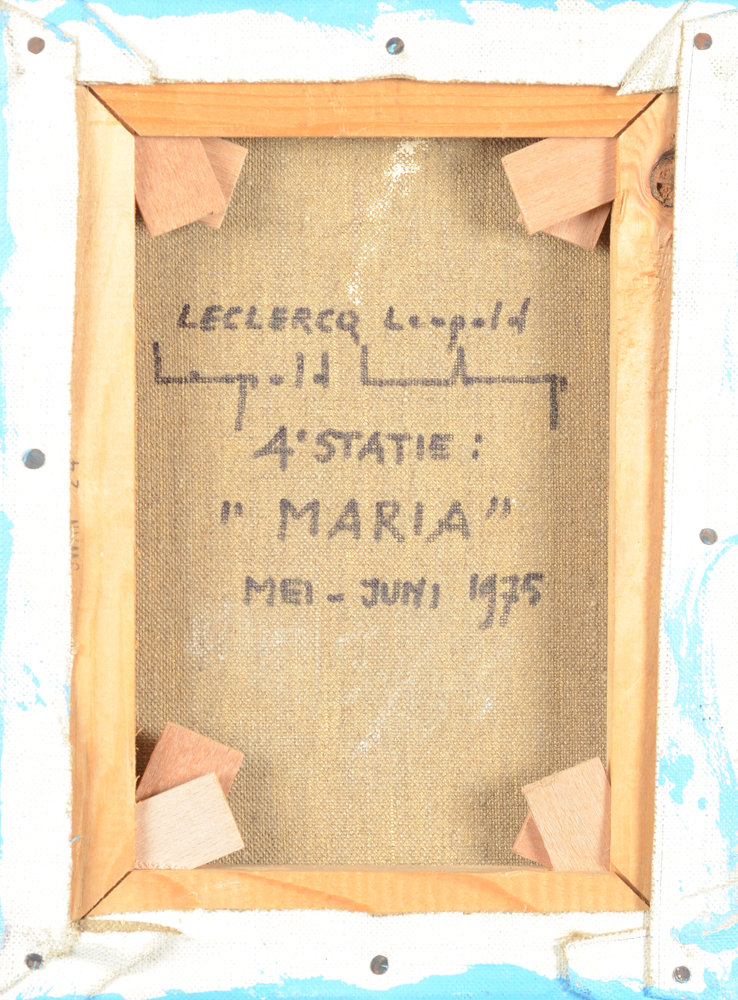 LECLERCQ Leopold
Leopold
4° STATIE :
" MARIA "
MEI - JUNI 1975